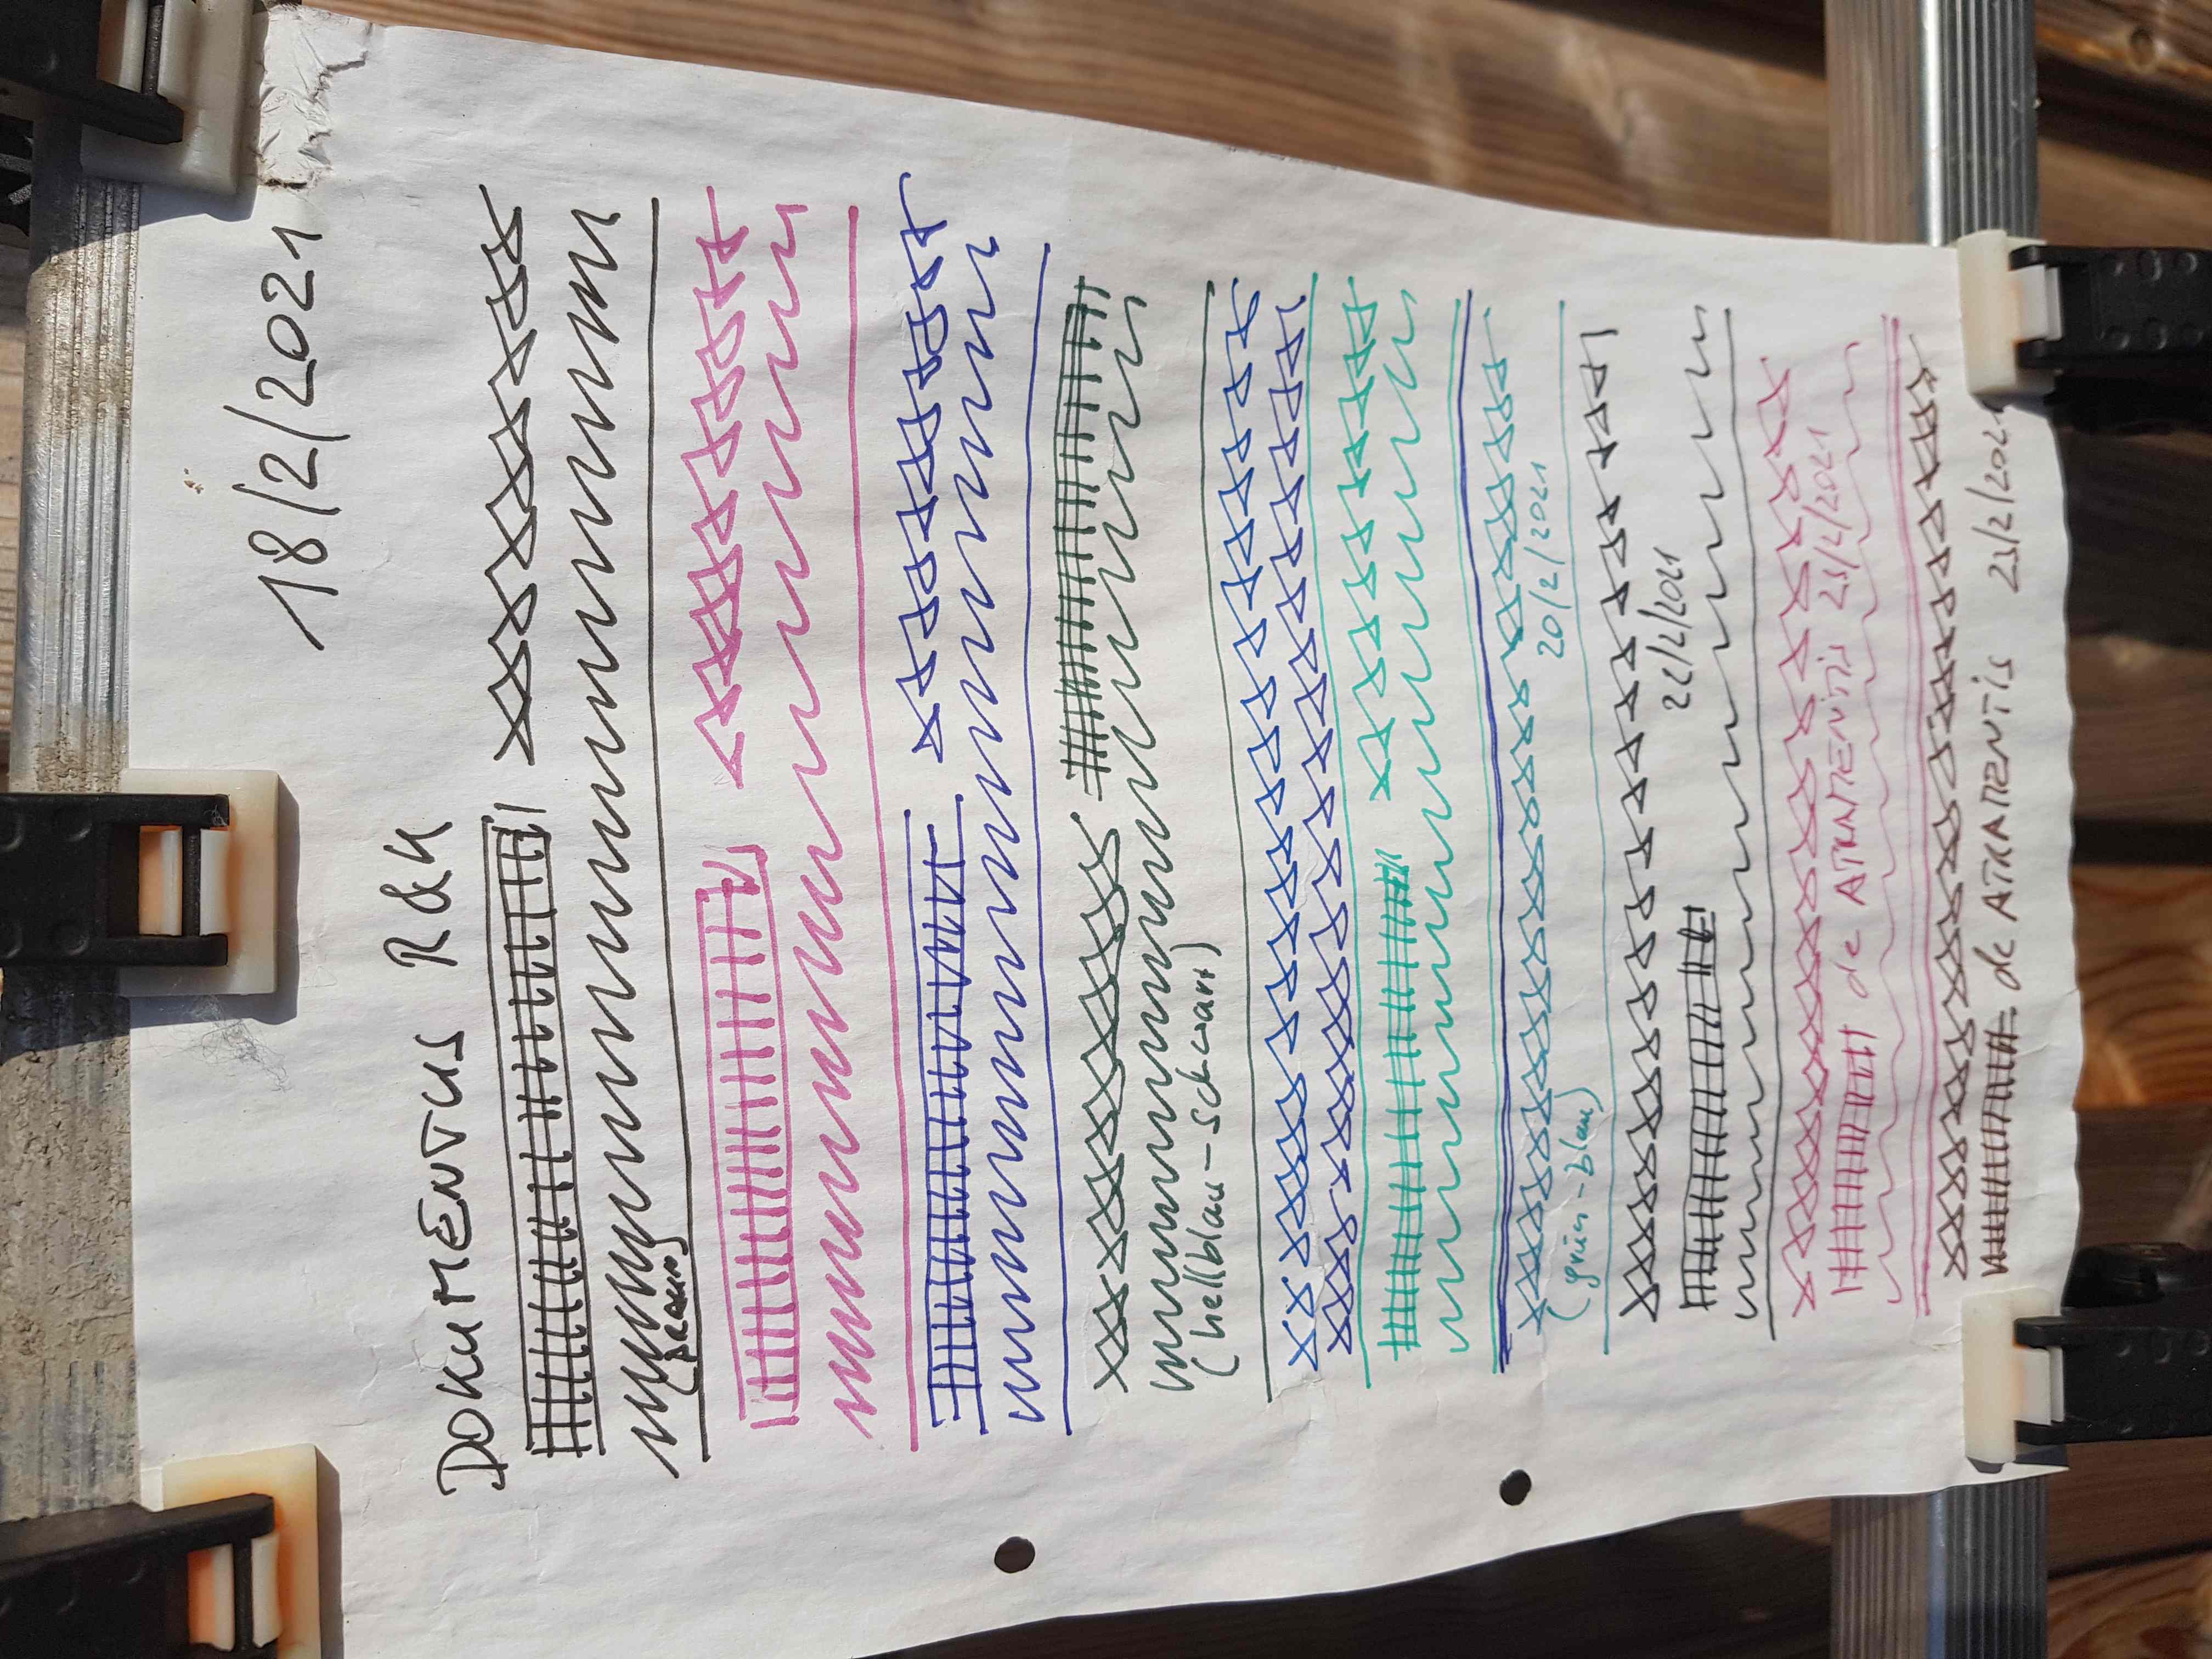 18/2/2021
DOKUMENTUS R&K
(BRAUN)
(hellblau-schwarz)
20/2/2021
(grün-blau)
22/2/2021
de ATRAMENTIS 23/2/2021
de ATRAMENTIS 23/2/2021